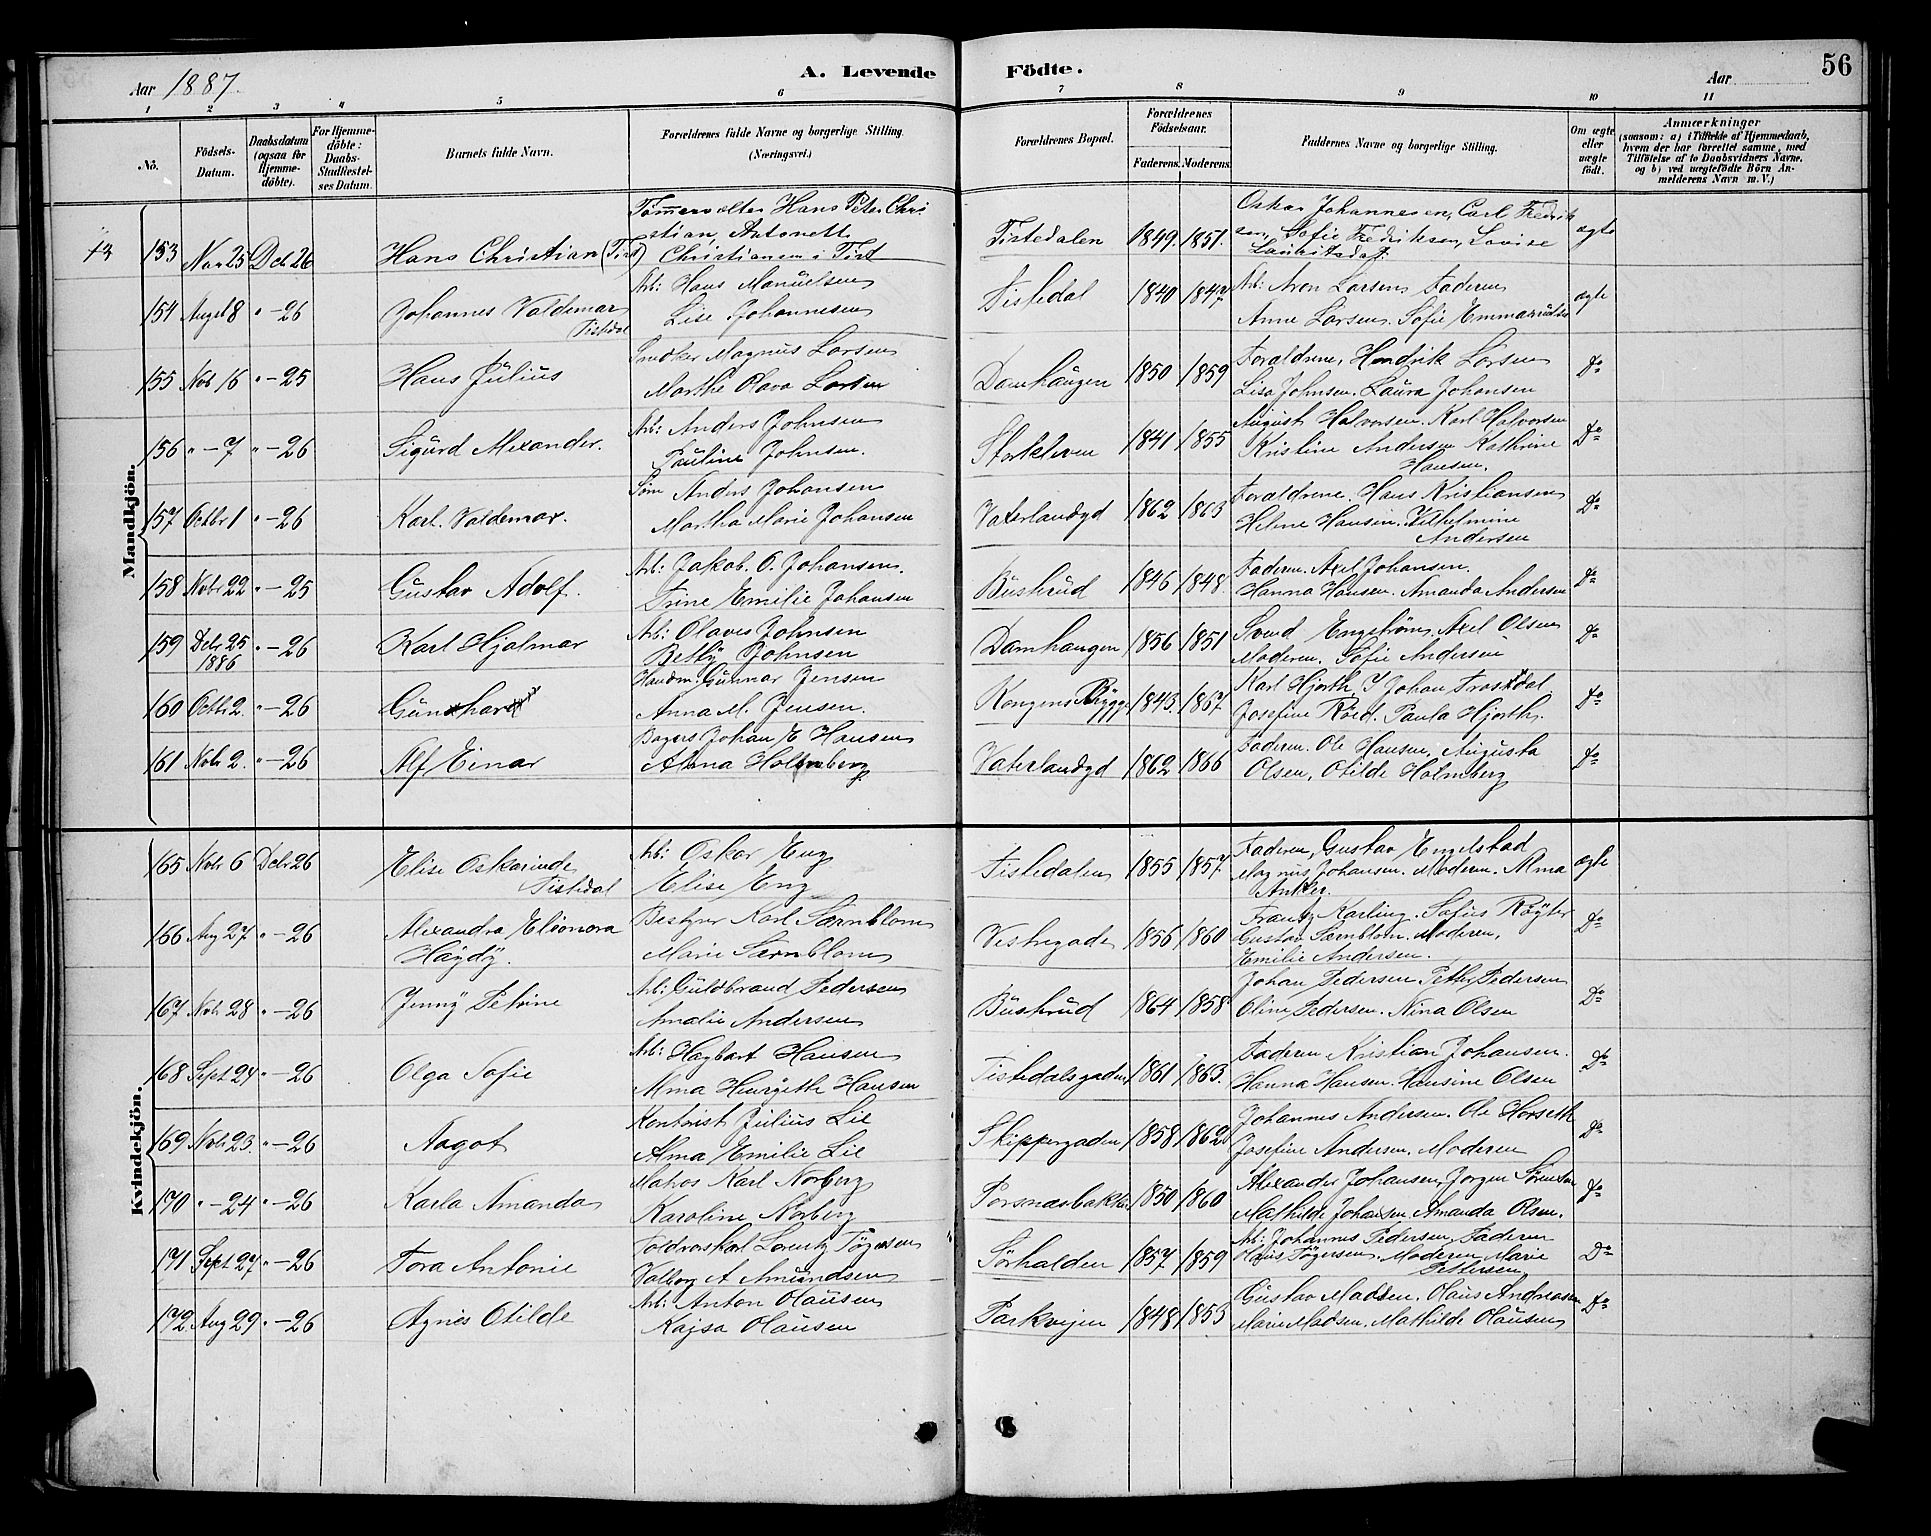 Aar 1887.
A. Levende Födte.
Aar
56
1 2 3 4 5 6 7 8 9 10 11
No.
Födsels-Datum.
Daabsdatum (ogsaa for Hjemme-döbte).
For Hjemme-döbte: Daabs-Stadfæstel-ses Datum.
Barnets fulde Navn.
Forældrenes fulde Navne og borgerlige Stilling. (Næringsvei.)
Forældrenes Bopæl.
Forældrenes Födselsaar.
Faderens. Moderens.
Faddernes Navne og borgerlige Stilling.
Om ægte eller uægte födt.
Anmærkninger (saasom: a) i Tilfælde af Hjemmedaab, hvem der har forrettet samme, med Tilföielse af to Daabsvidners Navne, og b) ved uægtefödte Börn An-melderens Navn m. V.)
Mandkjön.
153 Nov 25 Dcb 26 Hans Christian (Tist) Tømmervolter Hans Peter Christian, Antonette Christiansen i Tist Tistedalen 1849. 1851. Oskar Johannesen, Carl Fredriksen, Sofie Fredriksen, Lovise ægte
154 Augst 8 " - 26 Johannes Valdemar Tistedal Arb: Hans Manuelsen Lise Johannesen Tistedal 1840 1847 Arb: Aron Larsen, Faderen Anne Larsen. Sofie Emmanuelsen ægte
155 Nob 16 " - 25 Hans Julius Snedker Magnus Larsen Marthe Olava Larsen Damhaugen 1850 1859 Forældrene, Hendrik Larsen Lisa Johnsen. Laura Johansen Do
156 " - 7 " - 26 Sigurd Alexander. Arb: Anders Johnsen Pauline Johnsen. Storkleven 1841 1855 August Halvorsen. Karl Halvorsen Kristine Andersen Kathrine Hansen. Do
157 Octbr 1 " - 26 Karl. Valdemar. Søm Anders Johansen Martha Marie Johansen Vaterlandgd 1862 1863 Forældrene. Hans Kristiansen Helene Hansen. Vilhelmine Andersen Do
158 Nobr 22 " - 25 Gustav Adolf. Arb: Jakob. O. Johansen. Trine Emilie Johansen Buskrud 1846 1848. Faderen. Axel Johansen. Hanna Hansen. Amanda Andersen Do
159 Dcbr 25 1886 " - 26 Karl Hjalmar Arb: Olaves Johnsen Betty Johnsen Damhaugen 1856 1851 Svend Engstrøm. Axel Olsen Moderen. Sofie Andersen Do
160 Octb 2. " - 26 Gunhard Handm. Gunnar Jensen Anna M. Jensen. Kongens Brygge 1843. 1867 Karl Hjorth. J Johan Frostdal. Josefine Röed. Paula Hjorth. Do
161 Nob 2. " - 26 Alf Einar Bagers Johan E Hansen Anna Holmberg Vaterlandgd 1862 1866 Faderen. Ole Hansen. Augusta Olsen, Otilde Holmberg Do
Kvindekjön.
165 Nob 6 Dcbr 26 Elise Oskarinde Tistedal Arb: Oskar Eng Elise Eng Tistedalen 1855 1857 Faderen, Gustav Engelstad Magnus Johansen. Moderen. Alma Anker. ægte
166 Aug 27 " - 26 Alexandra Eleonora Haydy. Bestyrer Karl Særnblom Marie Særnblom Vestregade 1856 1860 Frantz Karling. Sofus Røyter Gustav Særnblom. Moderen, Emilie Andersen. Do
167 Nob 28 " - 26 Jenny Petrine Arb: Guldbrand Pedersen Amalie Andersen Buskrud 1864 1858 Johan Pedersen Petter Pedersen Oline Pedersen. Nina Olsen Do
168 Sept 24 " - 26 Olga Sofie Arb: Hagbart Hansen Alma Hengrethe Hansen Tistedalsgaden 1861 1863. Faderen Kristian Johansen. Hanna Hansen. Hansine Olsen Do
169 Nob 23. " - 26 Aagot Kontorist Julius Lie Alma Emilie Lie Skippergaden 1858 1862 Johannes Andersen. Ole Horseth Josefine Andersen. Moderen Do
170 " - 24 " - 26 Karla Amanda Matros Karl Norberg Karoline Norberg Porsnæsbakken 1850 1860 Alexander Johansen, Jorgen Sörensen Mathilde Johansen. Amanda Olsen. Do
171 Sept 27 " - 26 Tora Antonie Toldvorskarl Lorentz Tøgersen Valborg A Amundsen Sörhalden 1857 1859 Arb: Johannes Pedersen, Faderen Olaus Tøgersen. Moderen Marie Pettersen Do
172 Aug 29 " - 26 Agnes Otilde Arb: Anton Olausen Kajsa Olausen Parkvejen 1848 1853 Gustav Madsen. Olaus Andreasen Marie Madsen. Mathilde Olausen Do